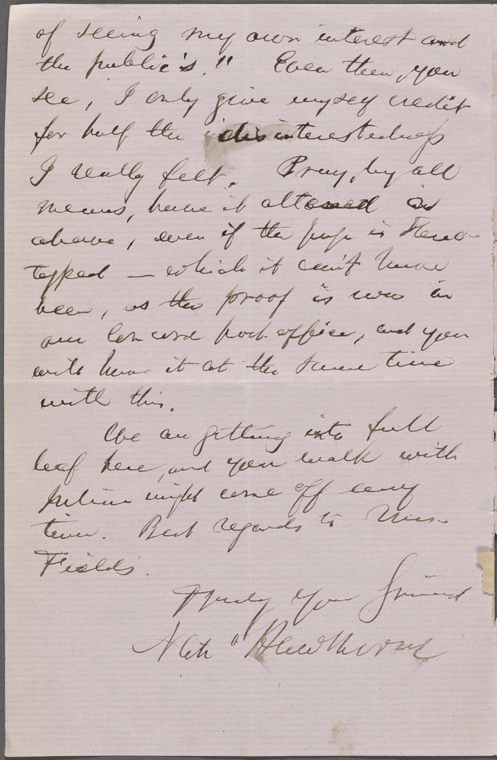 of seeing my own interest and
the public's." Even then, you
see, I only give myself credit
for half the disinterestedness
I really felt. Pray, by all
means, have it altered as
above, even if the page is stereo
typed — which it can't have
been, as the proof is now in
our Concord post office, and you
will have it at the same time
with this.
We are getting into full
leaf here, and your walk with
might come off any
time. Best regards to Mrs.
Fields.
Truly your friend
Nath Hawthorne